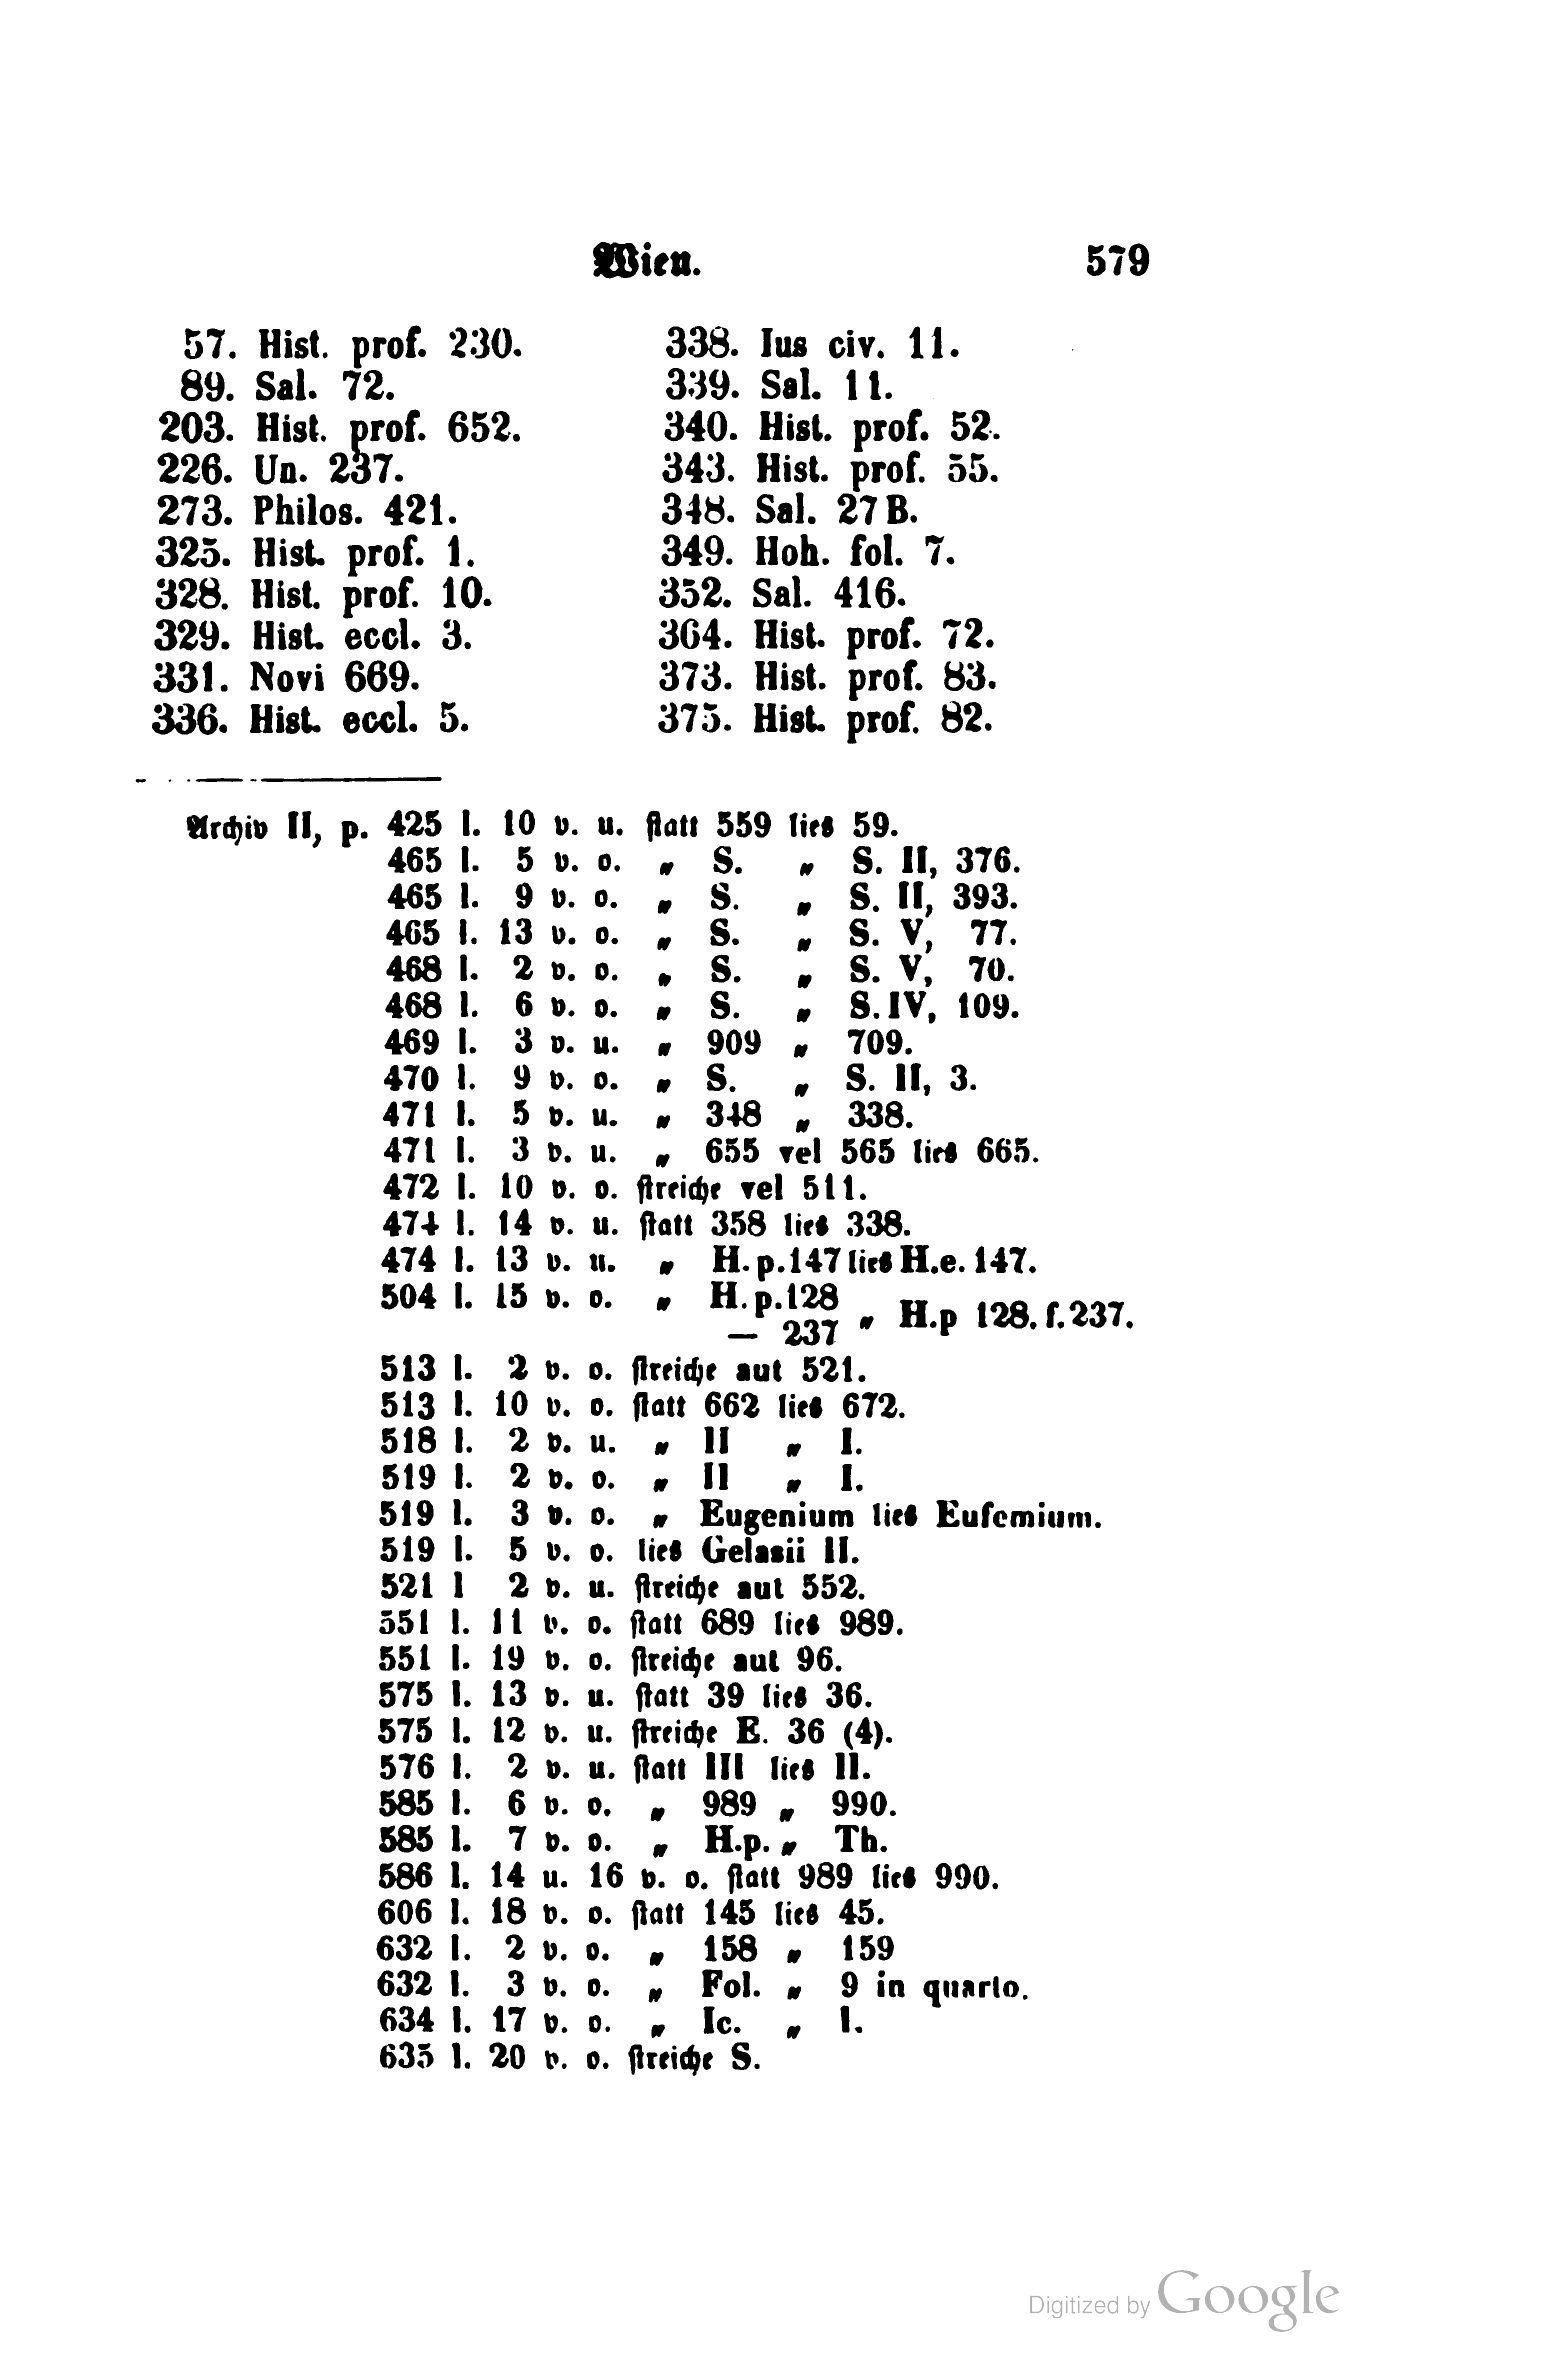 Wien. 579
57. Hist. prof. 230.
89. Sal. 72.
203. Hist. prof. 652.
226. Un. 237.
273. Philos. 421.
325. Hist. prof. 1.
328. Hist. prof. 10.
329. Hist. eccl. 3.
331. Novi 669.
336. Hist. eccl. 5.
338. Ius civ. 11.
339. Sal. 11.
340. Hist. prof. 52.
343. Hist. prof. 55.
348. Sal. 27 B.
349. Hoh. fol. 7.
352. Sal. 416.
364. Hist. prof. 72.
373. Hist. prof. 83.
375. Hist. prof. 82.
Archiv II, p. 425 l. 10 v. u. statt 559 lies 59.
465 l. 5 v. o. „ S. „ S. II, 376.
465 l. 9 v. o. „ S. „ S. II, 393.
465 l. 13 v. o. „ S. „ S. V, 77.
468 l. 2 v. o. „ S. „ S. V, 70.
468 l. 6 v. o. „ S. „ S. IV, 109.
469 l. 3 v. u. „ 909 „ 709.
470 l. 9 v. o. „ S. „ S. II, 3.
471 l. 5 v. u. „ 348 „ 338.
471 l. 3 v. u. „ 655 vel 565 lies 665.
472 l. 10 v. o. streiche vel 511.
474 l. 14 v. u. statt 358 lies 338.
474 l. 13 v. u. „ H. p. 147 lies H. e. 147.
504 l. 15 v. o. „ H. p. 128
— 237 „ H.p 128. f. 237.
513 l. 2 v. o. streiche aut 521.
513 l. 10 v. o. statt 662 lies 672.
518 l. 2 v. u. „ II „ I.
519 l. 2 v. o. „ II „ I.
519 l. 3 v. o. „ Eugenium lies Eufemium.
519 l. 5 v. o. lies Gelasii II.
521 l 2 v. u. streiche aut 552.
551 l. 11 v. o. statt 689 lies 989.
551 l. 19 v. o. streiche aut 96.
575 l. 13 v. u. statt 39 lies 36.
575 l. 12 v. u. streiche E. 36 (4).
576 l. 2 v. u. statt III lies II.
585 l. 6 v. o. „ 989 „ 990.
585 l. 7 v. o. „ H.p. „ Th.
586 l. 14 u. 16 v. o. statt 989 lies 990.
606 l. 18 v. o. statt 145 lies 45.
632 l. 2 v. o. „ 158 „ 159
632 l. 3 v. o. „ Fol. „ 9 in quarto.
634 l. 17 v. o. „ Ic. „ I.
635 l. 20 v. o. streiche S.
Digitized by Google